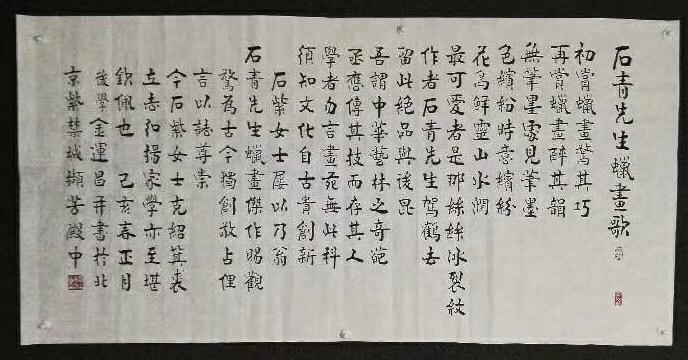 石青先生蠟畫歌
初賞蠟畫驚其巧
再賞蠟畫醉其韻
無筆墨處見筆墨
色繽紛時意繽紛
花鳥鮮靈山水潤
最可愛者是那絲絲冰裂紋
作者石青先生駕鶴去
留此絕品與後昆
吾謂中華藝林之奇葩
亟應傳其技而存其人
學者勿言畫苑無此科
須知文化自古貴創新
石紫女士屢以乃翁
石青先生蠟畫傑作賜觀
驚為古今獨創敬占俚
言以誌尊崇
今石紫女士克紹箕裘
立志弘揚家學亦至堪
欽佩也 己亥春正月
後學金運昌并書於北
京紫禁城擷芳殿中